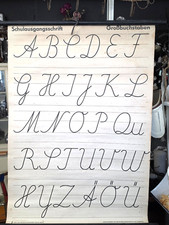 Schulausgangsschrift Großbuchstaben
A B C D E F
G H I J K L
M N O P Qu
R S T U V W
X Y Z Ä Ö Ü